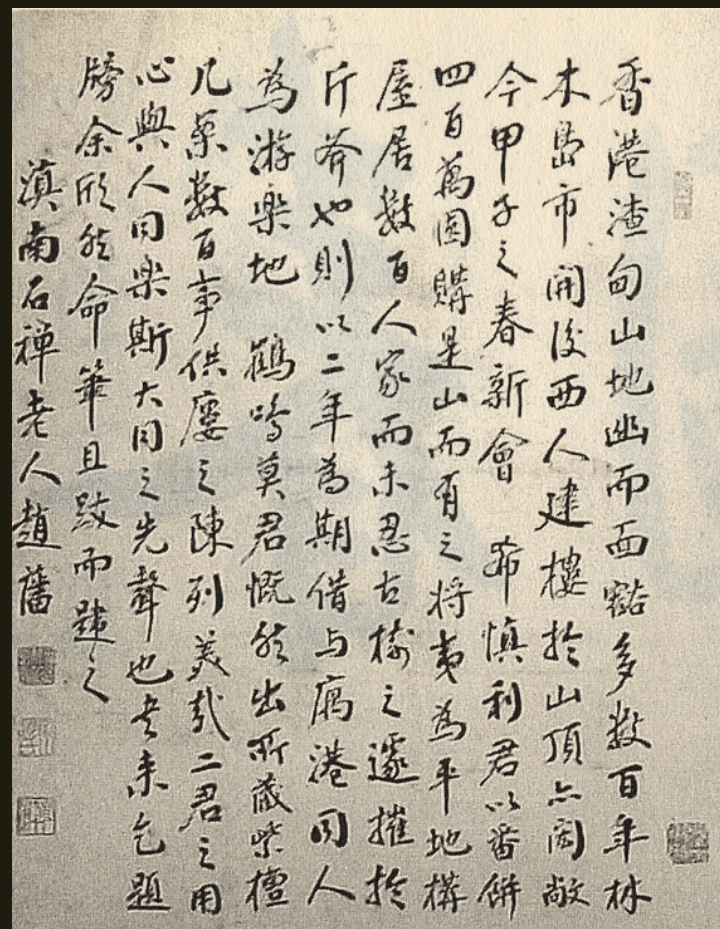 香港渣甸山地幽而面豁多数百年林
木島市開後西人建樓於山頂亦閎敞
今甲子之春新會 希慎利君以番餅
四百萬圓購是山而有之将夷為平地構
屋居數百人家而未忍古樹之遽摧於
斤斧也則以二年為期借与寓港同人
為游樂地 鶴鳴莫君慨然出所藏紫檀
几案數百事供廔之陳列美哉二君之用
心與人同樂斯大同之先聲也書来乞題
牓余欣然命筆且跋而歸之
滇南石禅老人趙藩